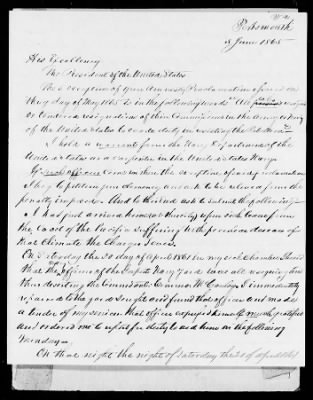 Va
Portsmouth
3 June 1865
His Excellency
The President of the United States
The exception of your Amnesty Proclamation of
day of May 1865 is in the following words "All who resigned
or tendered resignations of their Commissions in the Army or Navy
of the United States to evade duty in resisting the Rebellion"
I hold a warrant from the Navy Department of the
United States as a carpenter in the United States Navy
If officers come within the exception of said proclamation
I beg to petition for clemency and ask to be relieved from the
penalty imposed. And to that end ask to submit the following:
I had just arrived home on sick leave from
the Coast of the Pacific suffering with previous disease of
that climate the Chagres fever.
On Saturday the 20 day of April 1861 in my sick chamber I heard
that the officers of the Gosport Navy Yard were all resigning
then deserting the Commandant Commodore McCauley I immediately
repaired to the yard sought and found that officer and made
a tender of my services that officer expressed himself much gratified
and ordered me to report for duty to aid him on the following
Monday.
On that night the night of Saturday the 20 of April 1861